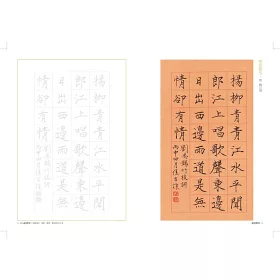 楊柳青青江水平聞
郎江上唱歌聲東邊
日出西邊雨道是無
情卻有情
劉禹錫竹枝詞
丙申四月
楊柳青青江水平聞
郎江上唱歌聲東邊
日出西邊雨道是無
情卻有情
劉禹錫竹枝詞